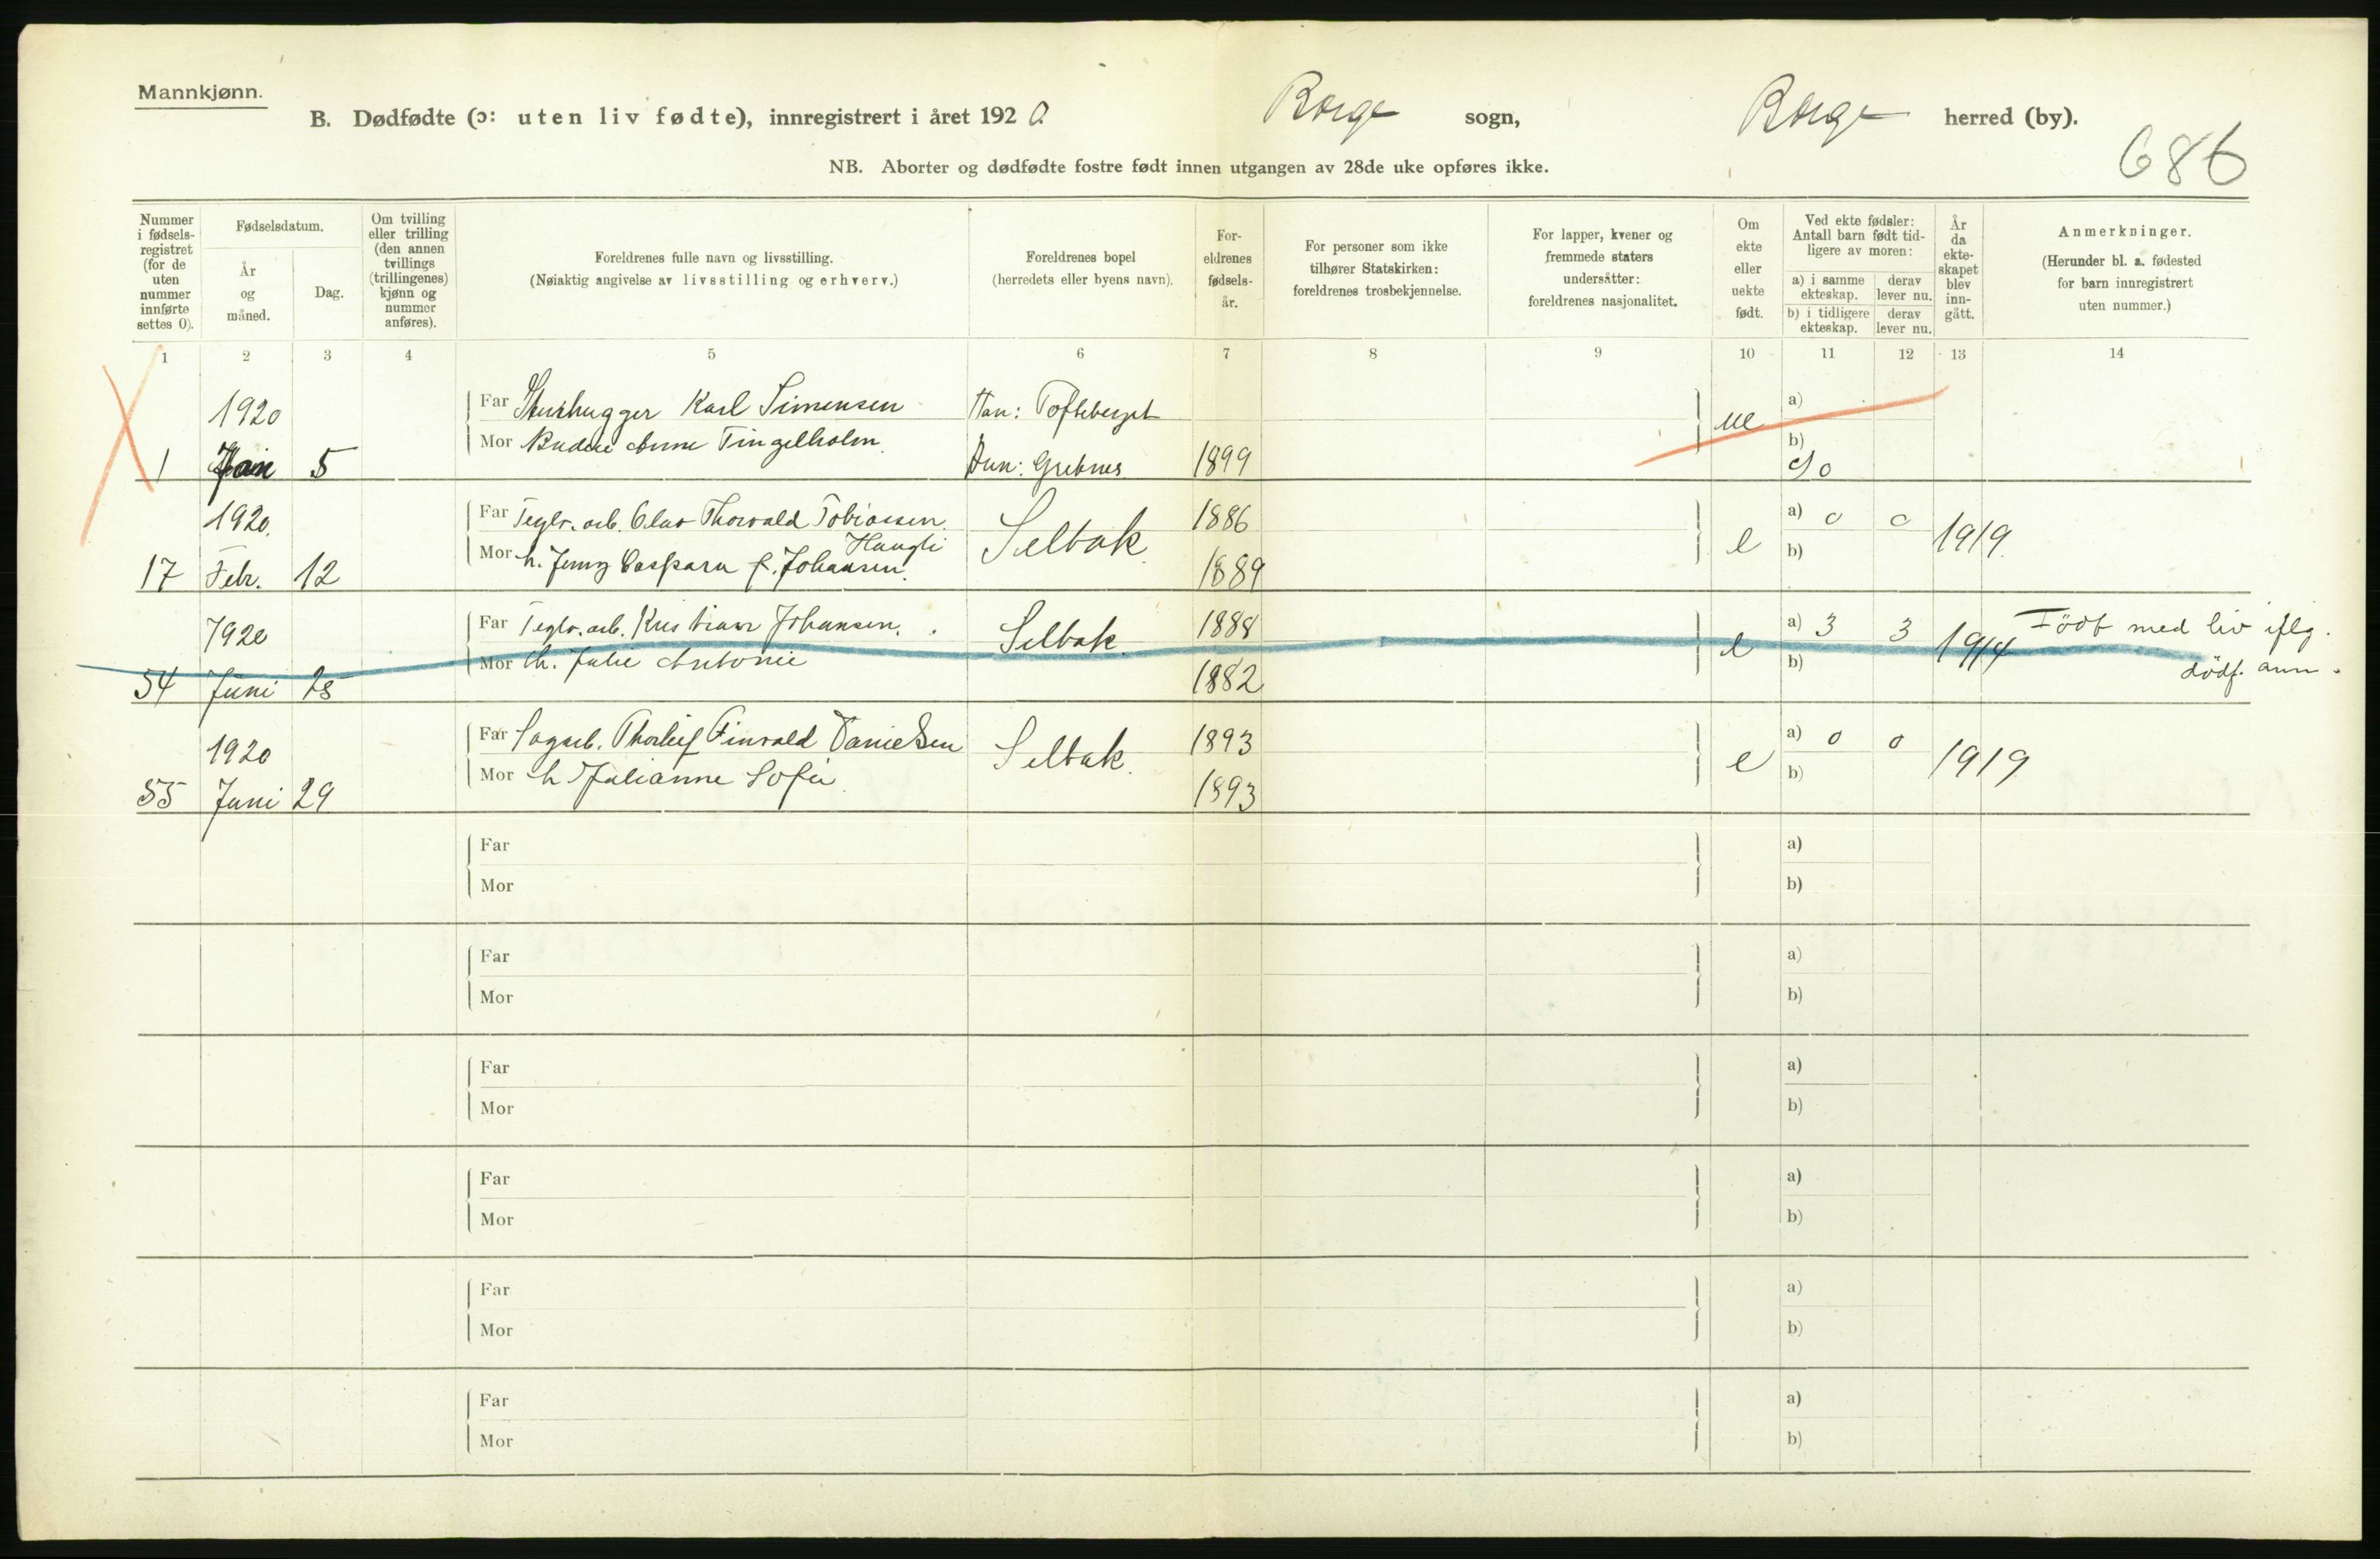 Mannkjønn.
B. Dødfødte (ɔ: uten liv fødte), innregistrert i året 1920. Borge sogn, Borge herred (by).
686
NB. Aborter og dødfødte fostre født innen utgangen av 28de uke opføres ikke.
Nummer i fødsels-registret (for de uten nummer innførte settes 0).
Fødselsdatum.
År og måned.
Dag.
Om tvilling eller trilling (den annen tvillings (trillingenes) kjønn og nummer anføres).
Foreldrenes fulle navn og livsstilling.
(Nøiaktig angivelse av livsstilling og erhverv.)
Foreldrenes bopel
(herredets eller byens navn).
For-eldrenes fødsels-år.
For personer som ikke tilhører Statskirken: foreldrenes trosbekjennelse.
For lapper, kvener og fremmede staters undersåtter: foreldrenes nasjonalitet.
Om ekte eller uekte født.
Ved ekte fødsler: Antall barn født tid-ligere av moren:
a) i samme ekteskap.
derav lever nu.
b) i tidligere ekteskap.
derav lever nu.
År da ekte-skapet blev inn-gått.
Anmerkninger.
(Herunder bl. a. fødested for barn innregistrert uten nummer.)
1 2 3 4 5 6 7 8 9 10 11 12 13 14
1920
Far Stenhugger Karl Simensen Han: Tofteberget ue a)
Mor Budeie Anne Tingelholm. b)
1 Jan 5 Hun: Grebnes 1899 0
1920.
Far Teglv. arb. Olav Thorvald Tobiassen. Selbak. 1886 e a) 0 0 1919.
Haugli
Mor h. Jenny Caspara f. Johansen. b)
17 Febr. 12 1889
1920
Far Teglv. arb. Kristian Johansen. Selbak. 1888 e a) 3 3 1914 Födt med liv iflg.
Mor h. Julie Antonie b) dödf. ann.
54 Juni 28 1882
1920
Far Sagarb. Thorleif Finvald Danielsen Selbak. 1893 e a) 0 0 1919
Mor h Julianne Sofie. b)
55 Juni 29 1893
Far a)
Mor b)
Far a)
Mor b)
Far a)
Mor b)
Far a)
Mor b)
Far a)
Mor b)
Far a)
Mor b)